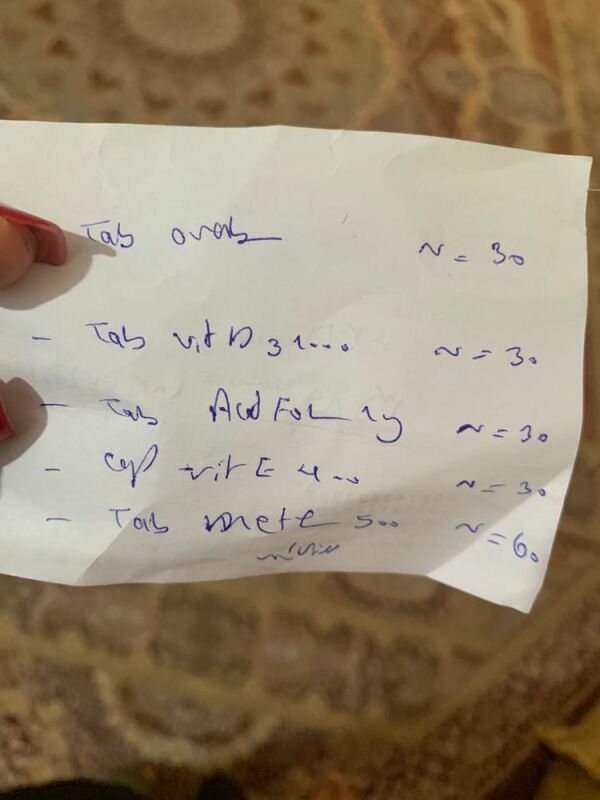 Tab N = 30
- Tab vit D3 1000 N = 30
- Tab Acid Fol 1mg N = 30
- cap vit E 400 N = 30
- Tab 500 N = 60